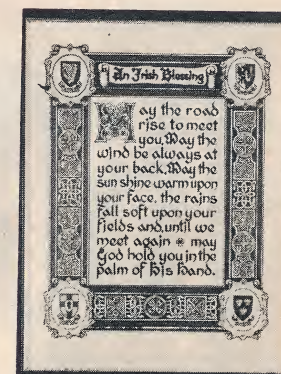 An Irish Blessing
May the road
rise to meet
you. May the
wind be always at
your back. May the
sun shine warm upon
your face, the rains
fall soft upon your
fields and, until we
meet again * may
God hold you in the
palm of His Hand.